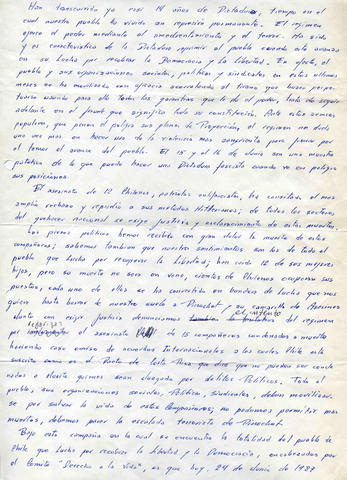 Han transcurrido ya casi 14 años de Dictadura, tiempo en el
cual nuestro pueblo ha vivido en represión permanente. El régimen
ejerce el poder mediante el amedrentamiento y el terror. Ha sido
y es característica de la Dictadura reprimir al pueblo cuando este avanza
en su lucha por recobrar la Democracia y la libertad. En efecto, el
pueblo y sus organizaciones sociales, políticas y sindicales en estos últimos
meses se ha movilizado con eficacia acorralando al tirano que busca perpe-
tuarse usando para ello todas las garantías que le da el poder, trata de seguir
adelante en el fraude que significa toda su constitución. Ante estos avances
populares, que ponen el peligro sus planes de Proyección, el régimen no duda
una vez más en hacer uso de la violencia más sangrienta para frenar por
el temor el avance del pueblo. El 15 y el 16 de Junio son una muestra
patética de lo que puede hacer una Dictadura fascista cuando ve en peligro
sus posiciones.
El asesinato de 12 Chilenos, patriotas rodriguistas, ha concitado el más
amplio rechazo y repudio a sus métodos Hitlerianos; de todos los sectores
del quehacer nacional se exige justicia y esclarecimiento de estas muertes.
Los presos políticos hemos recibido con gran dolor la muerte de estos
compañeros; sabemos también que nuestros sentimientos son los de todo el
pueblo que lucha por recuperar la libertad; han caído 12 de sus mejores
hijos, pero su muerte no será en vano, cientos de Chilenos ocuparán sus
puestos, cada uno de ellos se ha convertido en bandera de lucha que nos
guiará hasta borrar de nuestro suelo a Pinochet y su camarilla de Asesinos
Junto con exigir Justicia denunciamos el intento del régimen
por legalizar el asesinato de 15 compañeros condenados a muerte
haciendo caso omiso de acuerdos Internacionales a los cuales Chile está
suscrito como es el Pacto de Costa Rica que dice que no pueden ser conde-
nados a Muerte quienes sean Juzgados por delitos Políticos. Todo el
pueblo, sus organizaciones sociales, Políticas, Sindicales, deben movilizar-
se por salvar la vida de estos Compañeros; no podemos permitir más
muertes, debemos parar la escalada terrorista de Pinochet.
Bajo esta campaña en la cual se encuentra la totalidad del pueblo de
Chile que lucha por recobrar la libertad y la Democracia, encabezados por
el Comité "Derecho a la Vida", es que hoy, 24 de Junio de 1987